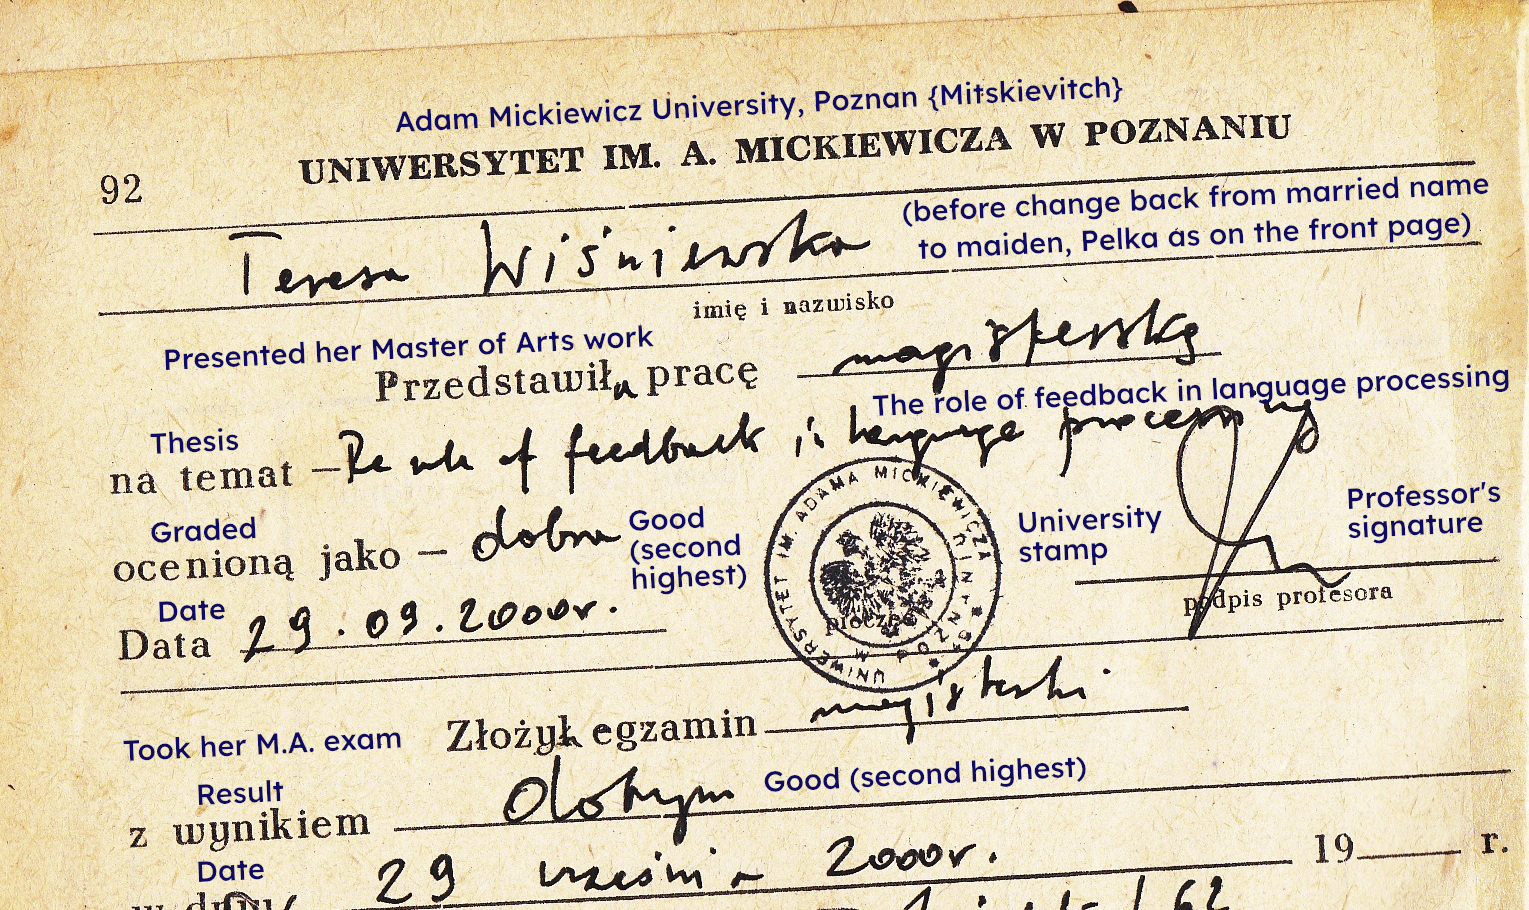 Adam Mickiewicz University, Poznan {Mitskievitch}
92 UNIWERSYTET IM. A. MICKIEWICZA W POZNANIU
(before change back from married name
to maiden, Pelka as on the front page)
Teresa Wiśniewska
imię i nazwisko
Presented her Master of Arts work
Przedstawiła pracę magisterską
The role of feedback in language processing
Thesis
na temat – The role of feedback in language processing
Graded
ocenioną jako – dobra
Good
(second
highest)
UNIWERSYTET IM. ADAMA MICKIEWICZA W POZNANIU
University
stamp
Professor's
signature
podpis profesora
Date
Data 29.09.2000r.
Took her M.A. exam
Złożył egzamin magisterski
Result
z wynikiem dobrym
Good (second highest)
Date
29 września 2000r. 19 r.